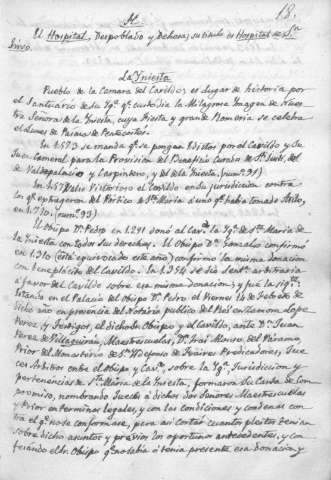 H.
18.
El Hospital, Despoblado y Dehesa; su titulo es Hospital de Sn
La Iniesta
Pueblo de la Camara del Cavildo; es lugar de historia por
el Santuario de su Yga. qe. custodia la Milagrosa Imagen de Nues
tra Señora de la Iniesta, cuya Fiesta y grande Romeria se celebra
el Lunes de Pascua de Pentecostes.
En 1573 se manda qe. se pongan Edictos por el Cavildo y su
Juez General para la Provision del Beneficio Curado de
Valdepalacios y Carpintero, y del de la Iniesta. (num. 91)
En 1571 salio Victorioso el Cavildo en su jurisdiccion contra
en 1.710. (num. 93)
El Obispo Dn. Pedro en 1.291 donó al Car. la Yga. de Sta. Maria de
la Iniesta con todos sus derechos. El Obispo Dn. Gonzalo confirmo
en 1.310 (está equivocado este año) confirmó la misma donacion
con beneplacito del Cavildo. En 1.354 se dio Sent. arbitraria
a favor del Cavildo sobre esa misma donacion; y fué la sigte.
Estando en el Palacio del Obispo Dn. Pedro el Viernes 14 de Febrero de
dicho año en presencia del Notario publico del Rey Lope
Perez, y Testigos, el dicho Sr. Obispo y el Cavildo, ante Dn. Juan
Perez de Villaquiran, Maestrescuelas, Dn. Frai Alonso del Páramo,
Prior del Monasterio de Sn. Yldefonso de Fraires Predicadores, Jue
ces Arbitros entre el Obispo y Cavo. sobre la Yga. Jurisdiccion y
pertenencias de Sta. Maria de la Iniesta, formaron su Carta de Com
promiso, nombrando Jueces á dichos dos Señores Maestrescuelas
y Prior en terminos legales, y con las condiciones y condenas con
tra el qe. no se conformare, para asi cortar cuantos pleitos tenian
sobre dicho asunto y previos los oportunos antecedentes, y con
fesando el Sr. Obispo qe. no habia ó tenia presente esa donacion y